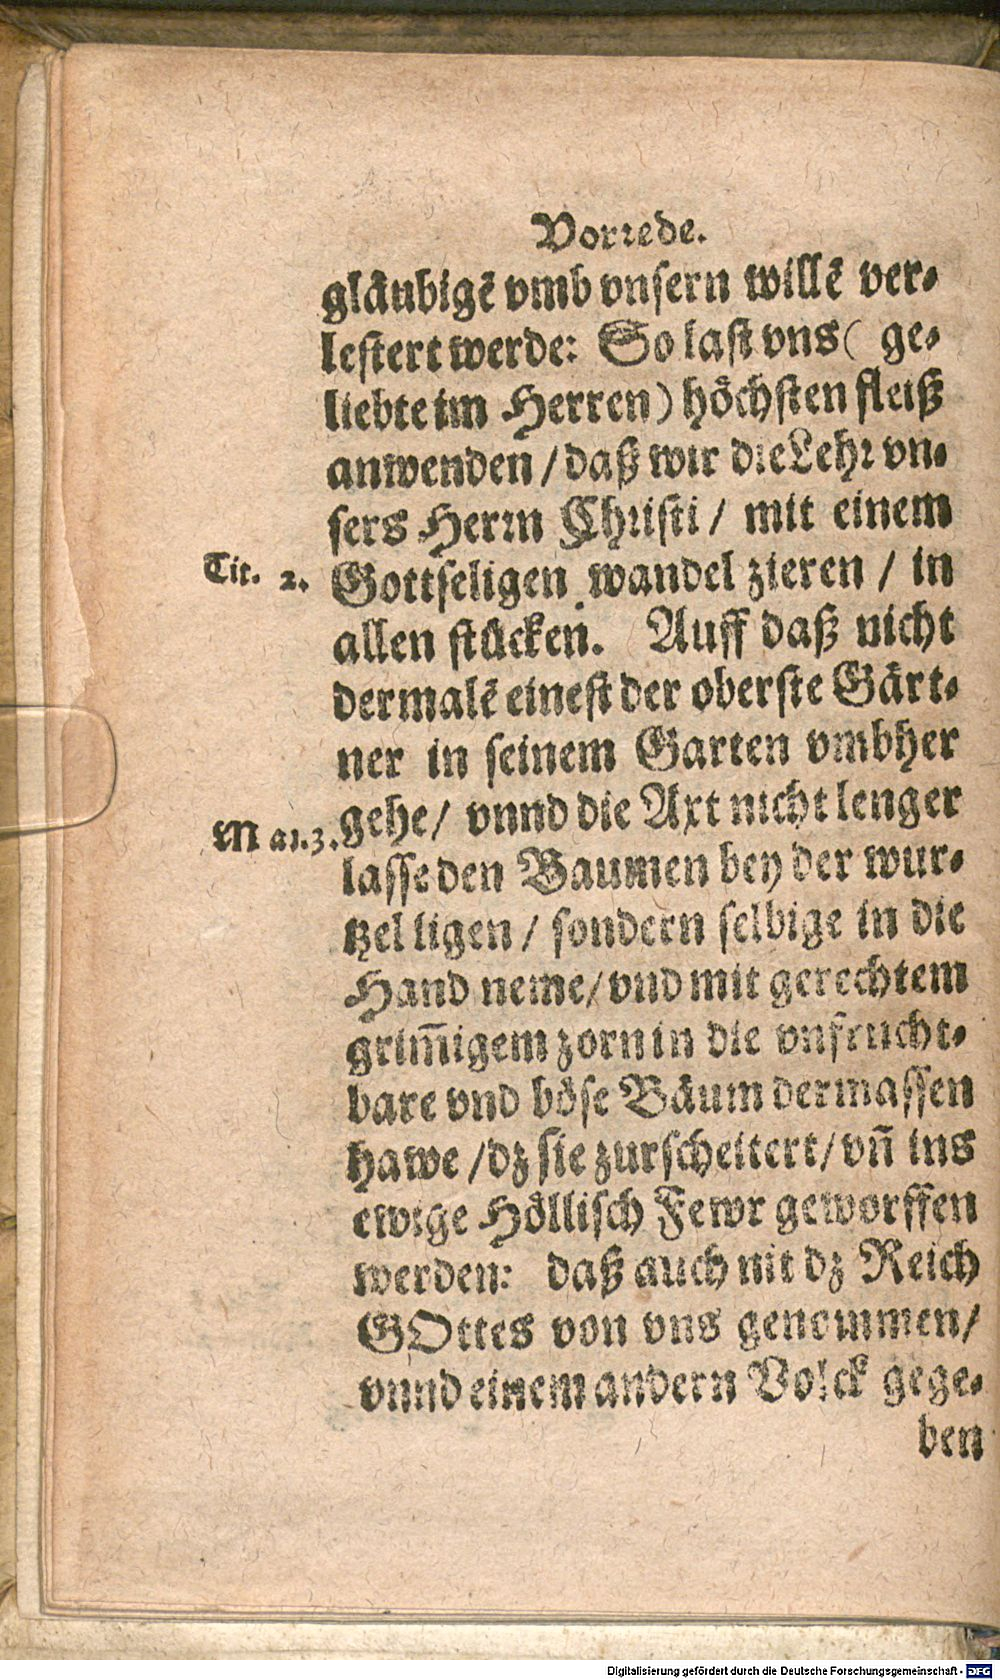 Vorrede.
gläubigē vmb vnsern willē ver-
lestert werde: So last vns ( ge-
liebte im Herren) höchsten fleiß
anwenden / daß wir die Lehr vn-
sers Herrn Christi / mit einem
Tit. 2. Gottseligen wandel zieren / in
allen stücken. Auff daß nicht
dermalē einest der oberste Gärt-
ner in seinem Garten vmbher
Mat. 3. gehe / vnnd die Axt nicht lenger
lasse den Baumen bey der wur-
tzel ligen / sondern selbige in die
Hand neme / vnd mit gerechtem
grim̄igem zorn in die vnfrucht-
bare vnd böse Bäum dermassen
hawe / dz sie zurscheitert / vn̄ ins
ewige Höllisch Fewr geworffen
werden: daß auch nit dz Reich
GOttes von vns genommen /
vnnd einem andern Volck gege-
ben
Digitalisierung gefördert durch die Deutsche Forschungsgemeinschaft - DFG